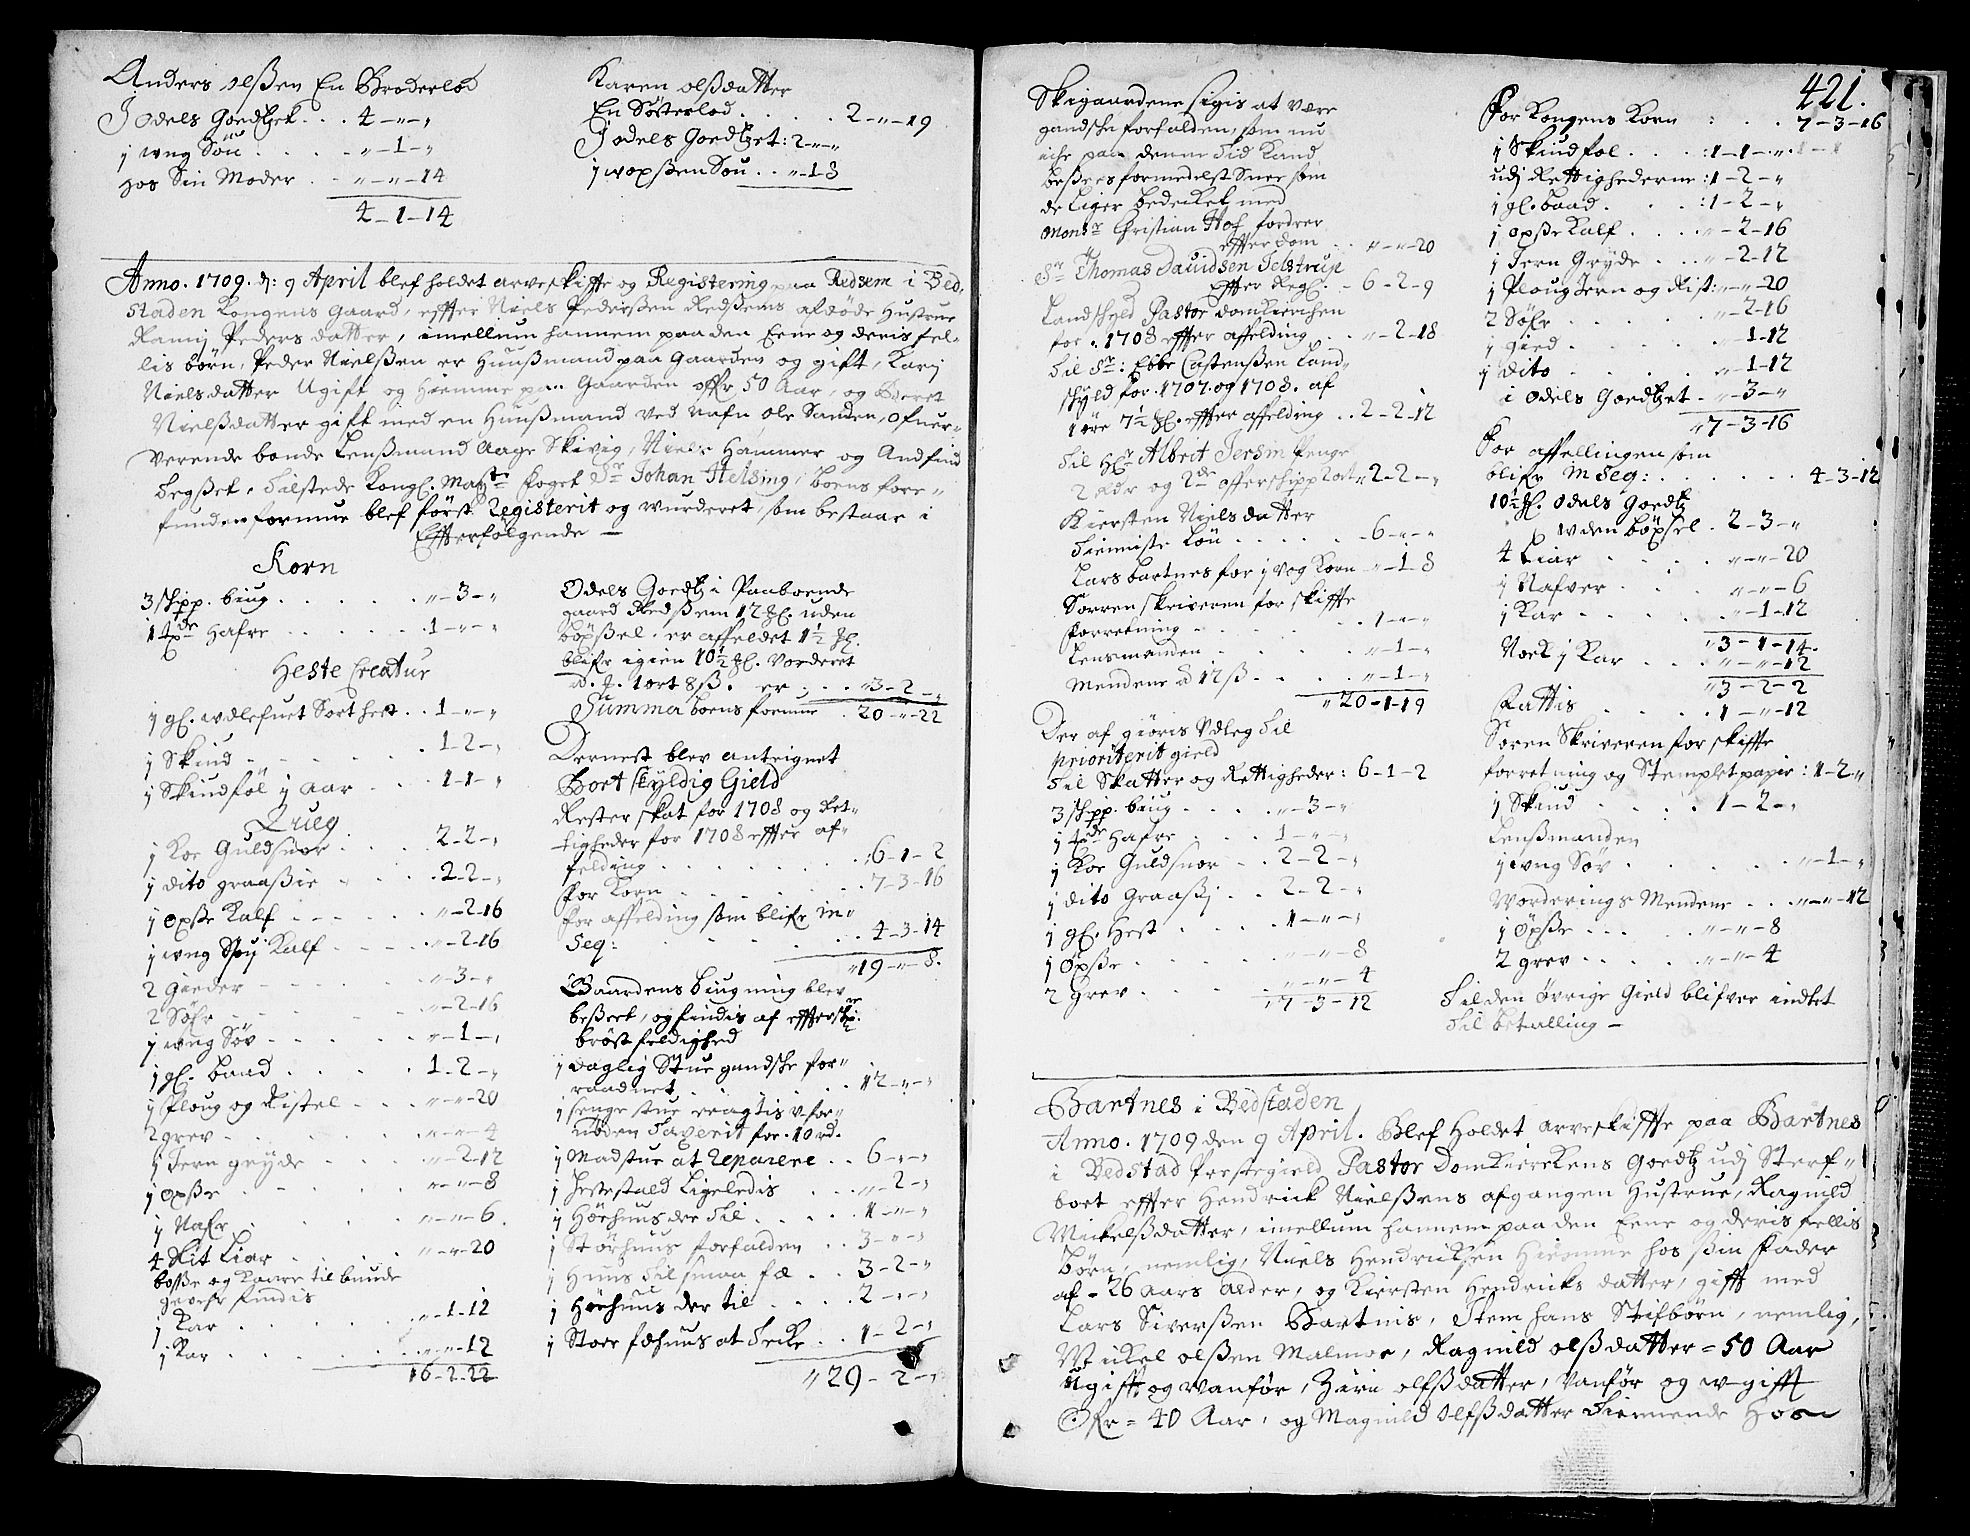 Anders olßen En Broderlod
J odels Goedtzet . . . 4 – „ – „
1 ung Söu . . . . – „ – 1 – „
Hos Sin Moder . . – „ – „ – 14
4 – 1 – 14
Karen olßdatter
En Sösterlod . . . . . 2 – „ – 19
J odels Goedtzet : 2 – „ – „
1 woxßen Sou . . „ – 18
Anno. 1709. d: 9 April blef holdet arveskiffte og Registering paa Redsem i Bed,
staden Kongens Gaard, effter Niels Pederßen Redßems afdöde Hustrue
Pedersdatter, imellum hannem paa den Eene og deris fel-
lis börn, Peder Nielßen er Huußmand paa Gaarden og gift, Karj
Nielsdatter Ugift og hiemme paa Gaarden offr 50 Aar, og Beret
Nielßdatter gift med en Huußmand ved nafn ole Sanden, ofuer-
verende bonde Lenßmand Aage Skivig, Niels Hammer og Andfind
Tegßet, Tilstede Kongl. Maystz foget Sr Johan Helsing, boens fore-
funden formue blef först Registerit og wurderet, som bestaar i
Effterfölgende –
Korn
3 skpp. biug . . . . . „ – 3 – „
1 tde Hafre . . . . . 1 – „ – „
Heste Creatur
1 gl. udlefuet Sort hest . . 1 – „ – „
1 Skind – . . . . . 1 – 2 – „
1 Skindföl 1 aar . . . 1 – 1 – „
Quieg
1 Koe Guldsnor . . . . 2 – 2 – „
1 dito graaßie . . . . 2 – 2 – „
1 oxße Kalf . . . . „ – 2 – 16
1 ung Kalf . . . . „ – 2 – 16
2 Gieder . . . . . „ – 3 – „
2 Söfr . . . . . „ – 2 – 16
1 ung Söv . . . . . „ – 1 – „
1 gl. baad . . . . . 1 – 2 – „
1 Ploug og Ristel . . . „ – „ – 20
2 grev . . . . . „ – „ – 4
1 Jern gryde . . . . „ – 2 – 12
1 oxße . . . . . „ – „ – 8
1 Nafr . . . . . „ – „ – 6
4 Slit Liar . . . . „ – „ – 20
boßße og Kaare til buude
gevehr findis
1 Kar . . . . . „ – 1 – 12
1 Kar . . . . . „ – „ – 12
16 – 2 – 22
Odels Goedtz i Paaboende
gaard Redßem 12 Hl. uden
böxßel. er affeldet 1½ Hl.
blifr igien 10½ Hl. Vorderet
a. H. 1 ort 8 ß. er . . . „ 3 – 2 – „
Summa boens formue . 20 – „ – 22
Dernest blev anteignet
Bort skyldig Gield
Rester skat for 1708 og Ret-
tigheder for 1708 effter af-
felding . . . . . „ 6 – 1 – 2
For Korn . . . . . 7 – 3 – 16
For affelding som blifr in-
Seq: . . . . . 4 – 3 – 14
„ 19 – „ – 8.
Gaardens biugning blev
beßeet, og findis af effterskr:
bröstfeldighed
1 daglig Stue gandske for-
raadnet . . . . . 12 – „ – „
1 senge stue reagtis v-for-
nöden Taxerit for. 10 rd.
1 Madstue at reparere . . 6 – „ – „
1 hestestald Ligeledis . . . „ – 2 – „
1 Höehuus der til . . . . 1 – „ – „
1 Störhuus forfalden . . 3 – „ – „
1 Huus til smaa fæ . . 3 – 2 – „
1 Höehuus der til . . . . 2 – „ – „
1 Stoer fæhuus at Tecke . . 1 – 2 – „
„ 29 – 2 – „
421.
Skigaardene sigis at være
gandske forfalden, som nu
iche paa denne Tid kand
beßees formedelst Snee som
de Liger bedecket med
Monsr Christian Hof fordrer
effter dom . . „ – „ – 20
Sr Thomas Davidsen Telstrup
Effter Regl. – 6 – 2 – 9
Landskyld Pastor domkierchen
for. 1708 effter affelding . . „ – 2 – 18
Til Sr: Ebbe Castensßen Land-
skyld for. 1707. og 1708. af
1 öre 7½ Hl. effter affelding . . 2 – 2 – 12
Til Hr Albrit Jersin Penge
2 rdr og 2de affer skipp Rost „ 2 – 2 – „
Kiersten Nielsdatter
Tieniste Lön . . . . . – 6 – „ – „
Lars bartnes for 1 vog Korn „ – 1 – 8
Sorren skriveren for skiffte
forretning . . . . . 1 – „ – „
Lensmanden . . . . . „ – 1 – „
Mendene a 12 ß . . . . „ – 1 – „
„ 20 – 1 – 19
Der af giöris Udleg Til
prioriterit gield
Til Skatter og Rettigheder : 6 – 1 – 2
3 skpp. biug . . . . „ – 3 – „
1 tde Hafre . . . . 1 – „ – „
1 Koe Guldsnor . . 2 – 2 – „
1 dito Graaßj . . 2 – 2 – „
1 gl. Hest . . . . 1 – „ – „
1 Öxße . . . . . „ – „ – 8
2 Grev . . . . . „ – „ – 4
„ 7 – 3 – 12
For Kongens Korn : . . . 7 – 3 – 16
1 Skindföl . . . : 1 – 1 – „
udj Rettighederne : 1 – 2 – „
1 gl. baad . . . : 1 – 2 – „
1 oxße Kalf . . . . „ – 2 – 16
1 Jern Gryde . . . „ – 2 – 12
1 Ploug Jern og Rist : „ – „ – 20
2 Söfr . . . . . „ – 2 – 16
1 gied . . . . . „ 1 – 12
1 dito . . . . . „ – 1 – 12
i odels Goedtzet . „ – 3 – „
„ 7 – 3 – 16
For affellingen som
blifr in Seq: . . . . . 4 – 3 – 12
10½ Hl. odels Goedtz
uden böxsel . 2 – 3 – „
4 Liar . . . . „ – „ – 20
1 Nafver . . . . „ – „ – 6
1 Kar . . . . „ – 1 – 12
„ 3 – 1 – 14.
Noch 1 Kar . . . . „ – „ – 12
„ 3 – 2 – 2
Fattis . . . . . 1 – „ – 12
Sören Skriveren for skiffte
forretning og Stemplet papir : 1 – 2 „
1 Skind . . . . 1 – 2 – „
Lenßmanden
1 ung Söv . . . . . „ – 1 – „
Vorderings Mendene . . . „ – „ – 12
1 Öxße . . . . „ – „ – 8
2 grev . . . . „ – „ – 4
Til den övrige Gield blifver indtet
til betalling –
Bartnes i Bedstaden
Anno. 1709 den 9 April. Blef Holdet arveskiffte paa Bartnes
i Bedstad Prestegield Pastor Domkierckens Goedtz udj Sterf-
boet effter Hendrick Nielßens afgangen Hustrue, Ragnild
Mickelßdatter, imellum hannem paa den Eene og deris fellis
börn, nemlig, Niels Hendricksen hiemme hos sin fader
af – 26 aars alder, og Kiersten Hendricks datter, gifft med
Lars Siverßen Bartnis, Item hans Stifbörn, nemlig,
Mickel olßen Malmoe, Ragnild olßdatter = 50 Aar
Ugifft og vanför, olfßdatter, vanför og w-gifft
Ofr = 40 Aar, og Magnild olfßdatter Tiennende Hoes